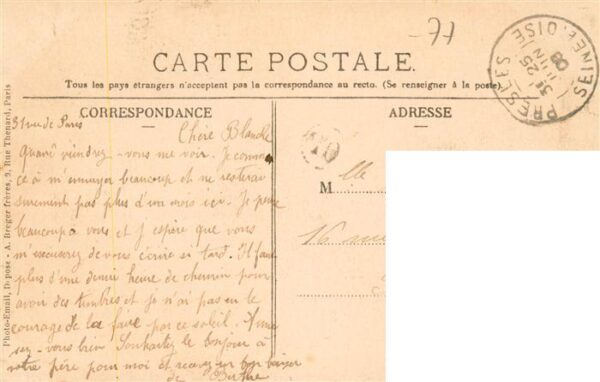 -77
CARTE POSTALE.
Tous les pays étrangers n'acceptent pas la correspondance au recto. (Se renseigner à la poste).
PRESLES
SEINE-&-OISE
25
JUIN
08
CORRESPONDANCE
ADRESSE
31 rue de Paris
Chère Blanche
Quand viendrez-vous me voir. Je commen
ce à m'ennuyer beaucoup et ne resterai
surement pas plus d'un mois ici. Je pense
beaucoup a vous et j'espère que vous
m'excuserez de vous écrire si tard. Il faut
plus d'une demie heure de chemin pour
avoir des timbres et je n'ai pas eu le
courage de la faire par ce soleil. Amu
sez-vous bien Souhaitez le bonjour à
votre père pour moi et recevez un bon baiser
de Berthe
M lle
16 rue
Photo-Email, Dépose - A. Breger frères, 9, Rue Thenard, Paris